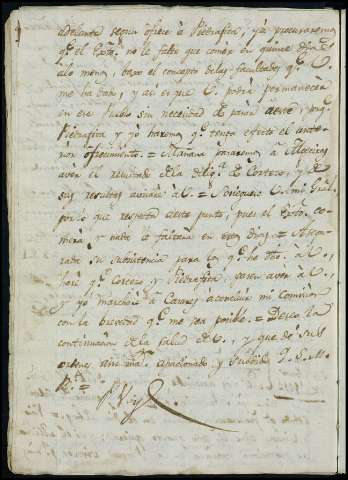 adelante segun ofice à Piedrafita, yá procuraremos
qe. el Exto. no le falte que comer en quince dias
alo menos, baxo el concepto delas facultades qe. V.
me há dado, y asi es que V. podra permanecer
en ese Pueblo sin necesidad de pasar à este, porqe.
Piedrafita y yó haremos qe. tenga efecto el ante-
rior ofrecimiento. = Mañana pasaremos à
aver el resultado dela dilig.a de Cortezo, y de
sus resultas avisaré à V. = Sosieguese V. mi Gral.
por lo que respecta à este punto, pues el Exto. co-
merá y nada le faltará en estos dias. = Asegu-
rada su subsistencia para lo qe. he dho. à V.,
haré qe. Cortezo y Piedrafita pasen aver à V.,
y yó marcharé à concluir mi comision
con la brevedad qe. me sea posible. = Deseo la
continuacion dela salud de V., y que dé sus
ordenes asu apasionado y subdito Q. S. M.
B. =